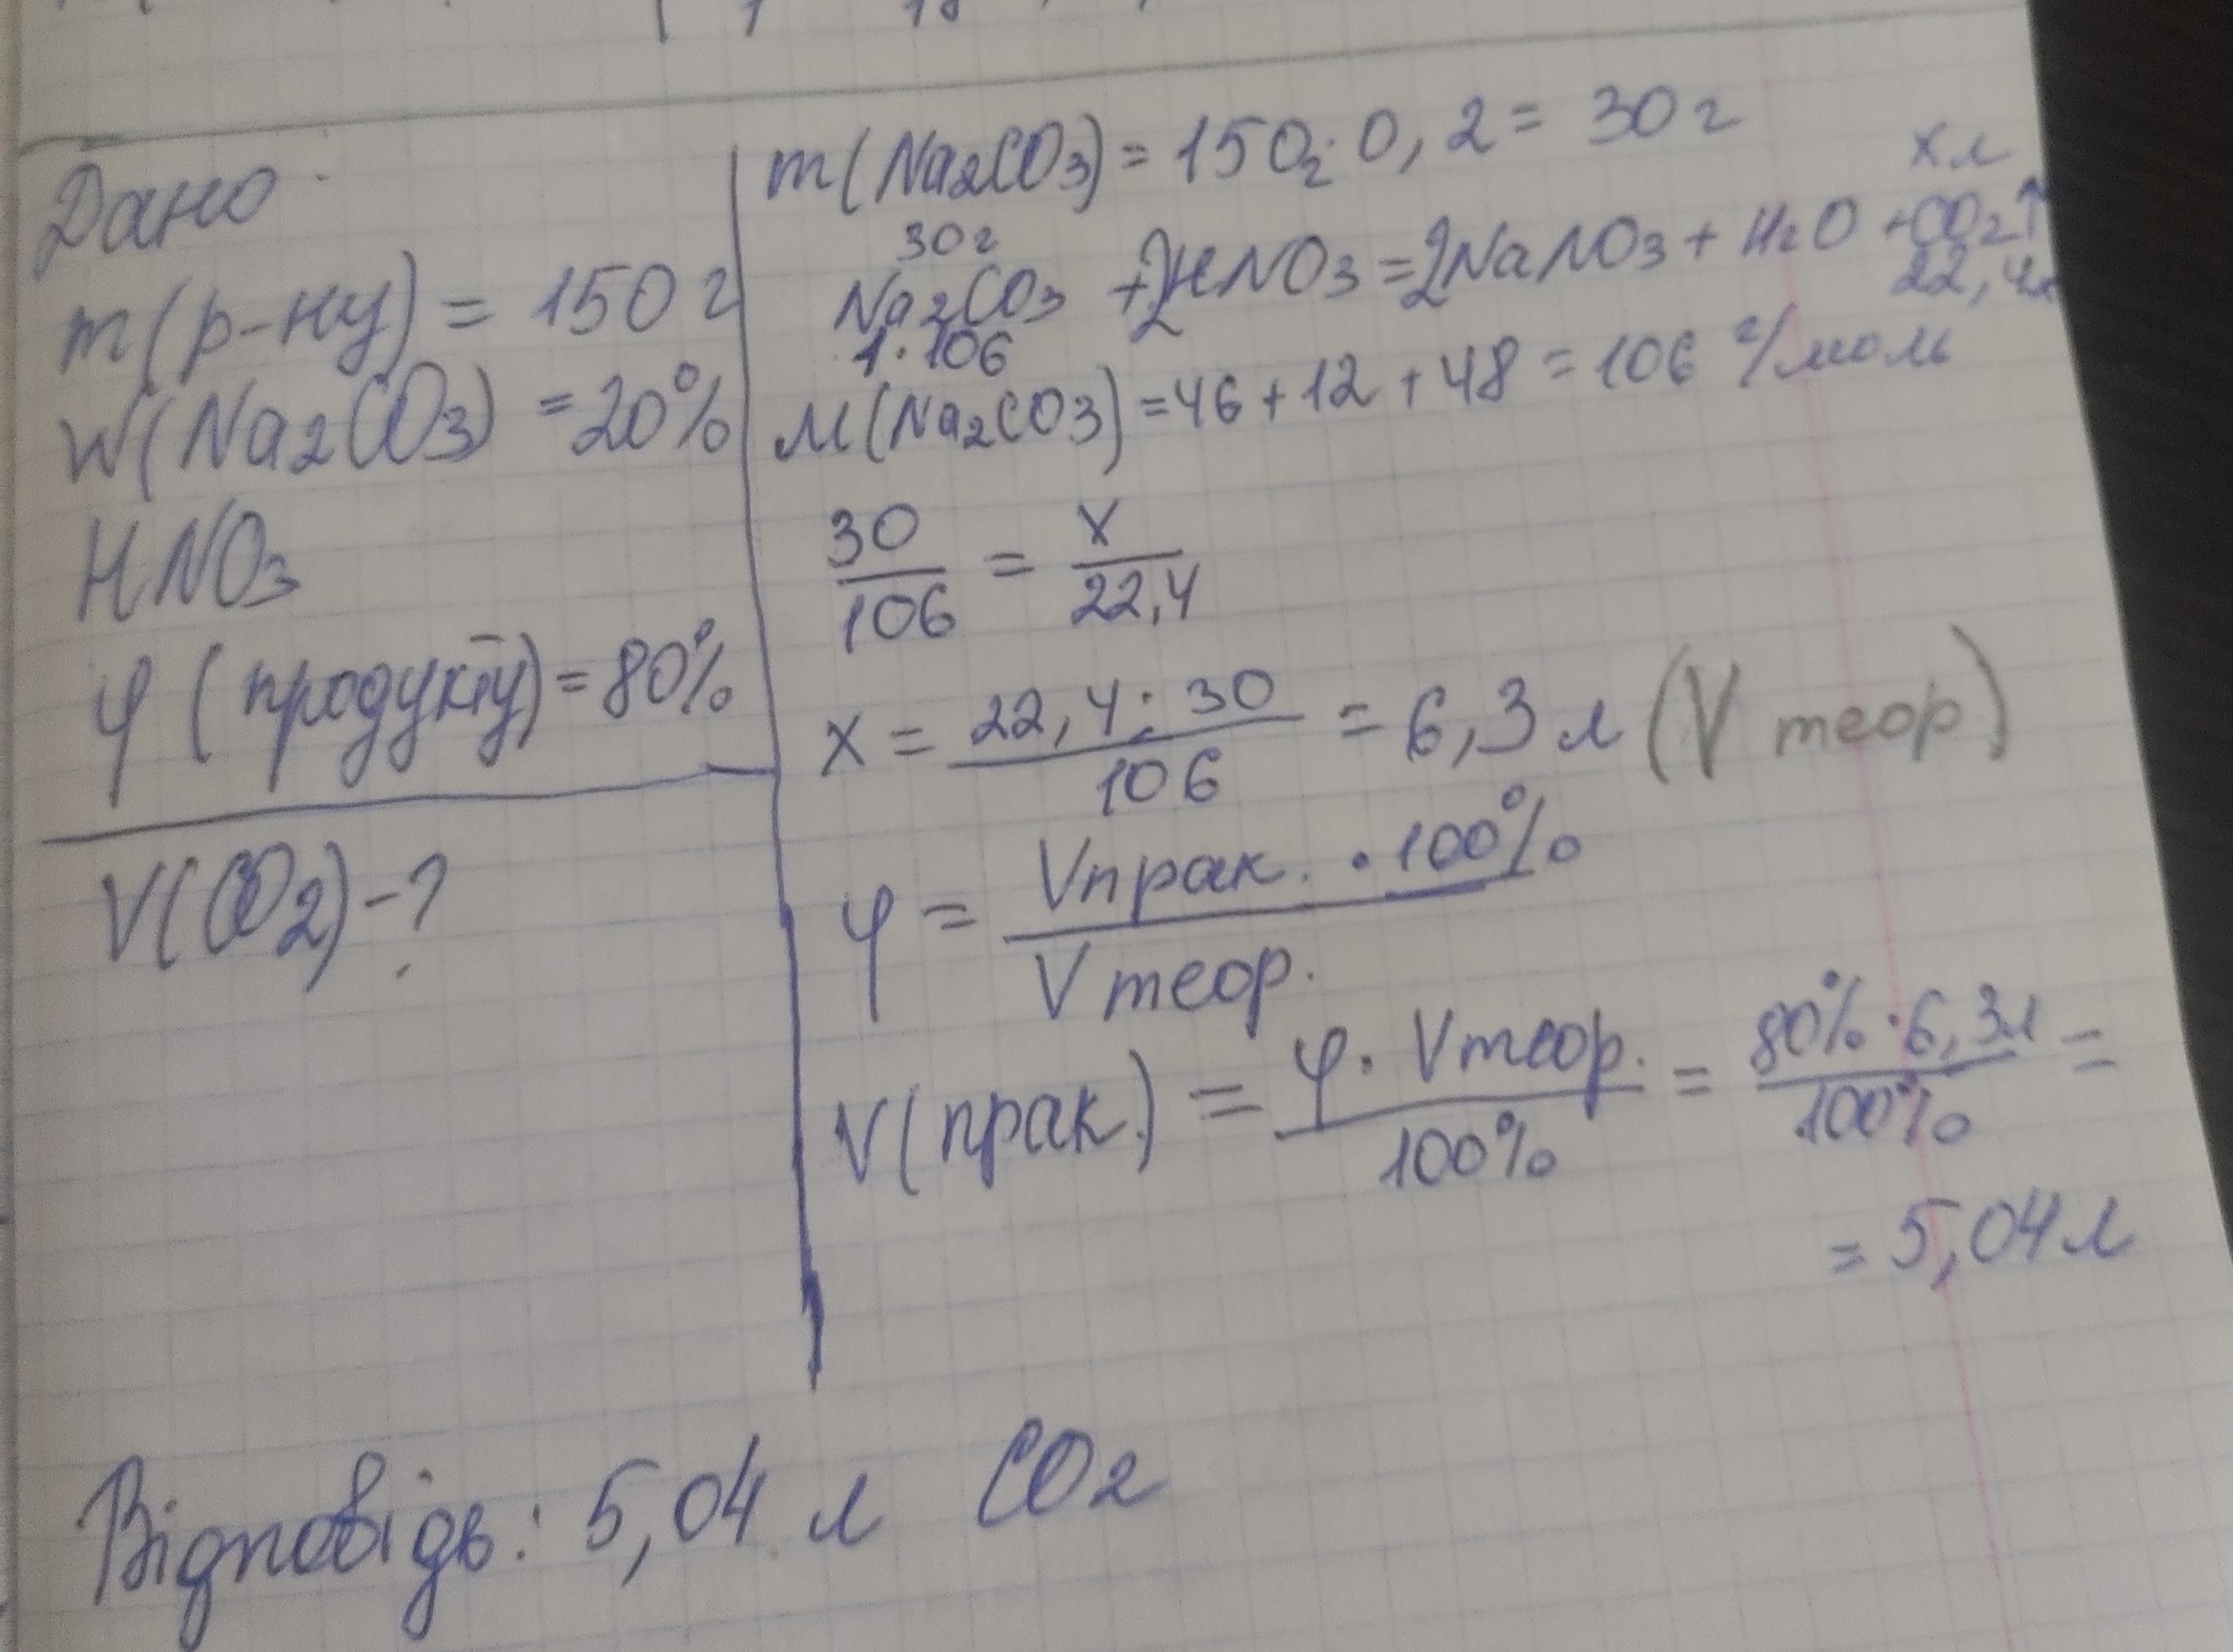 Дано:
m(р-ну) = 150 г
W(Na2CO3) = 20%
HNO3
φ (продукту) = 80%
V(CO2) - ?
m(Na2CO3) = 150г · 0,2 = 30 г
30г x л
Na2CO3 + 2HNO3 = 2NaNO3 + H2O + CO2↑
1·106 22,4л
M(Na2CO3) = 46 + 12 + 48 = 106 г/моль
30/106 = x/22,4
x = 22,4 · 30 / 106 = 6,3 л (V теор)
φ = Vпрак. · 100% / Vтеор.
V(прак.) = φ · Vтеор. / 100% = 80% · 6,3л / 100% =
= 5,04 л
Відповідь: 5,04 л CO2